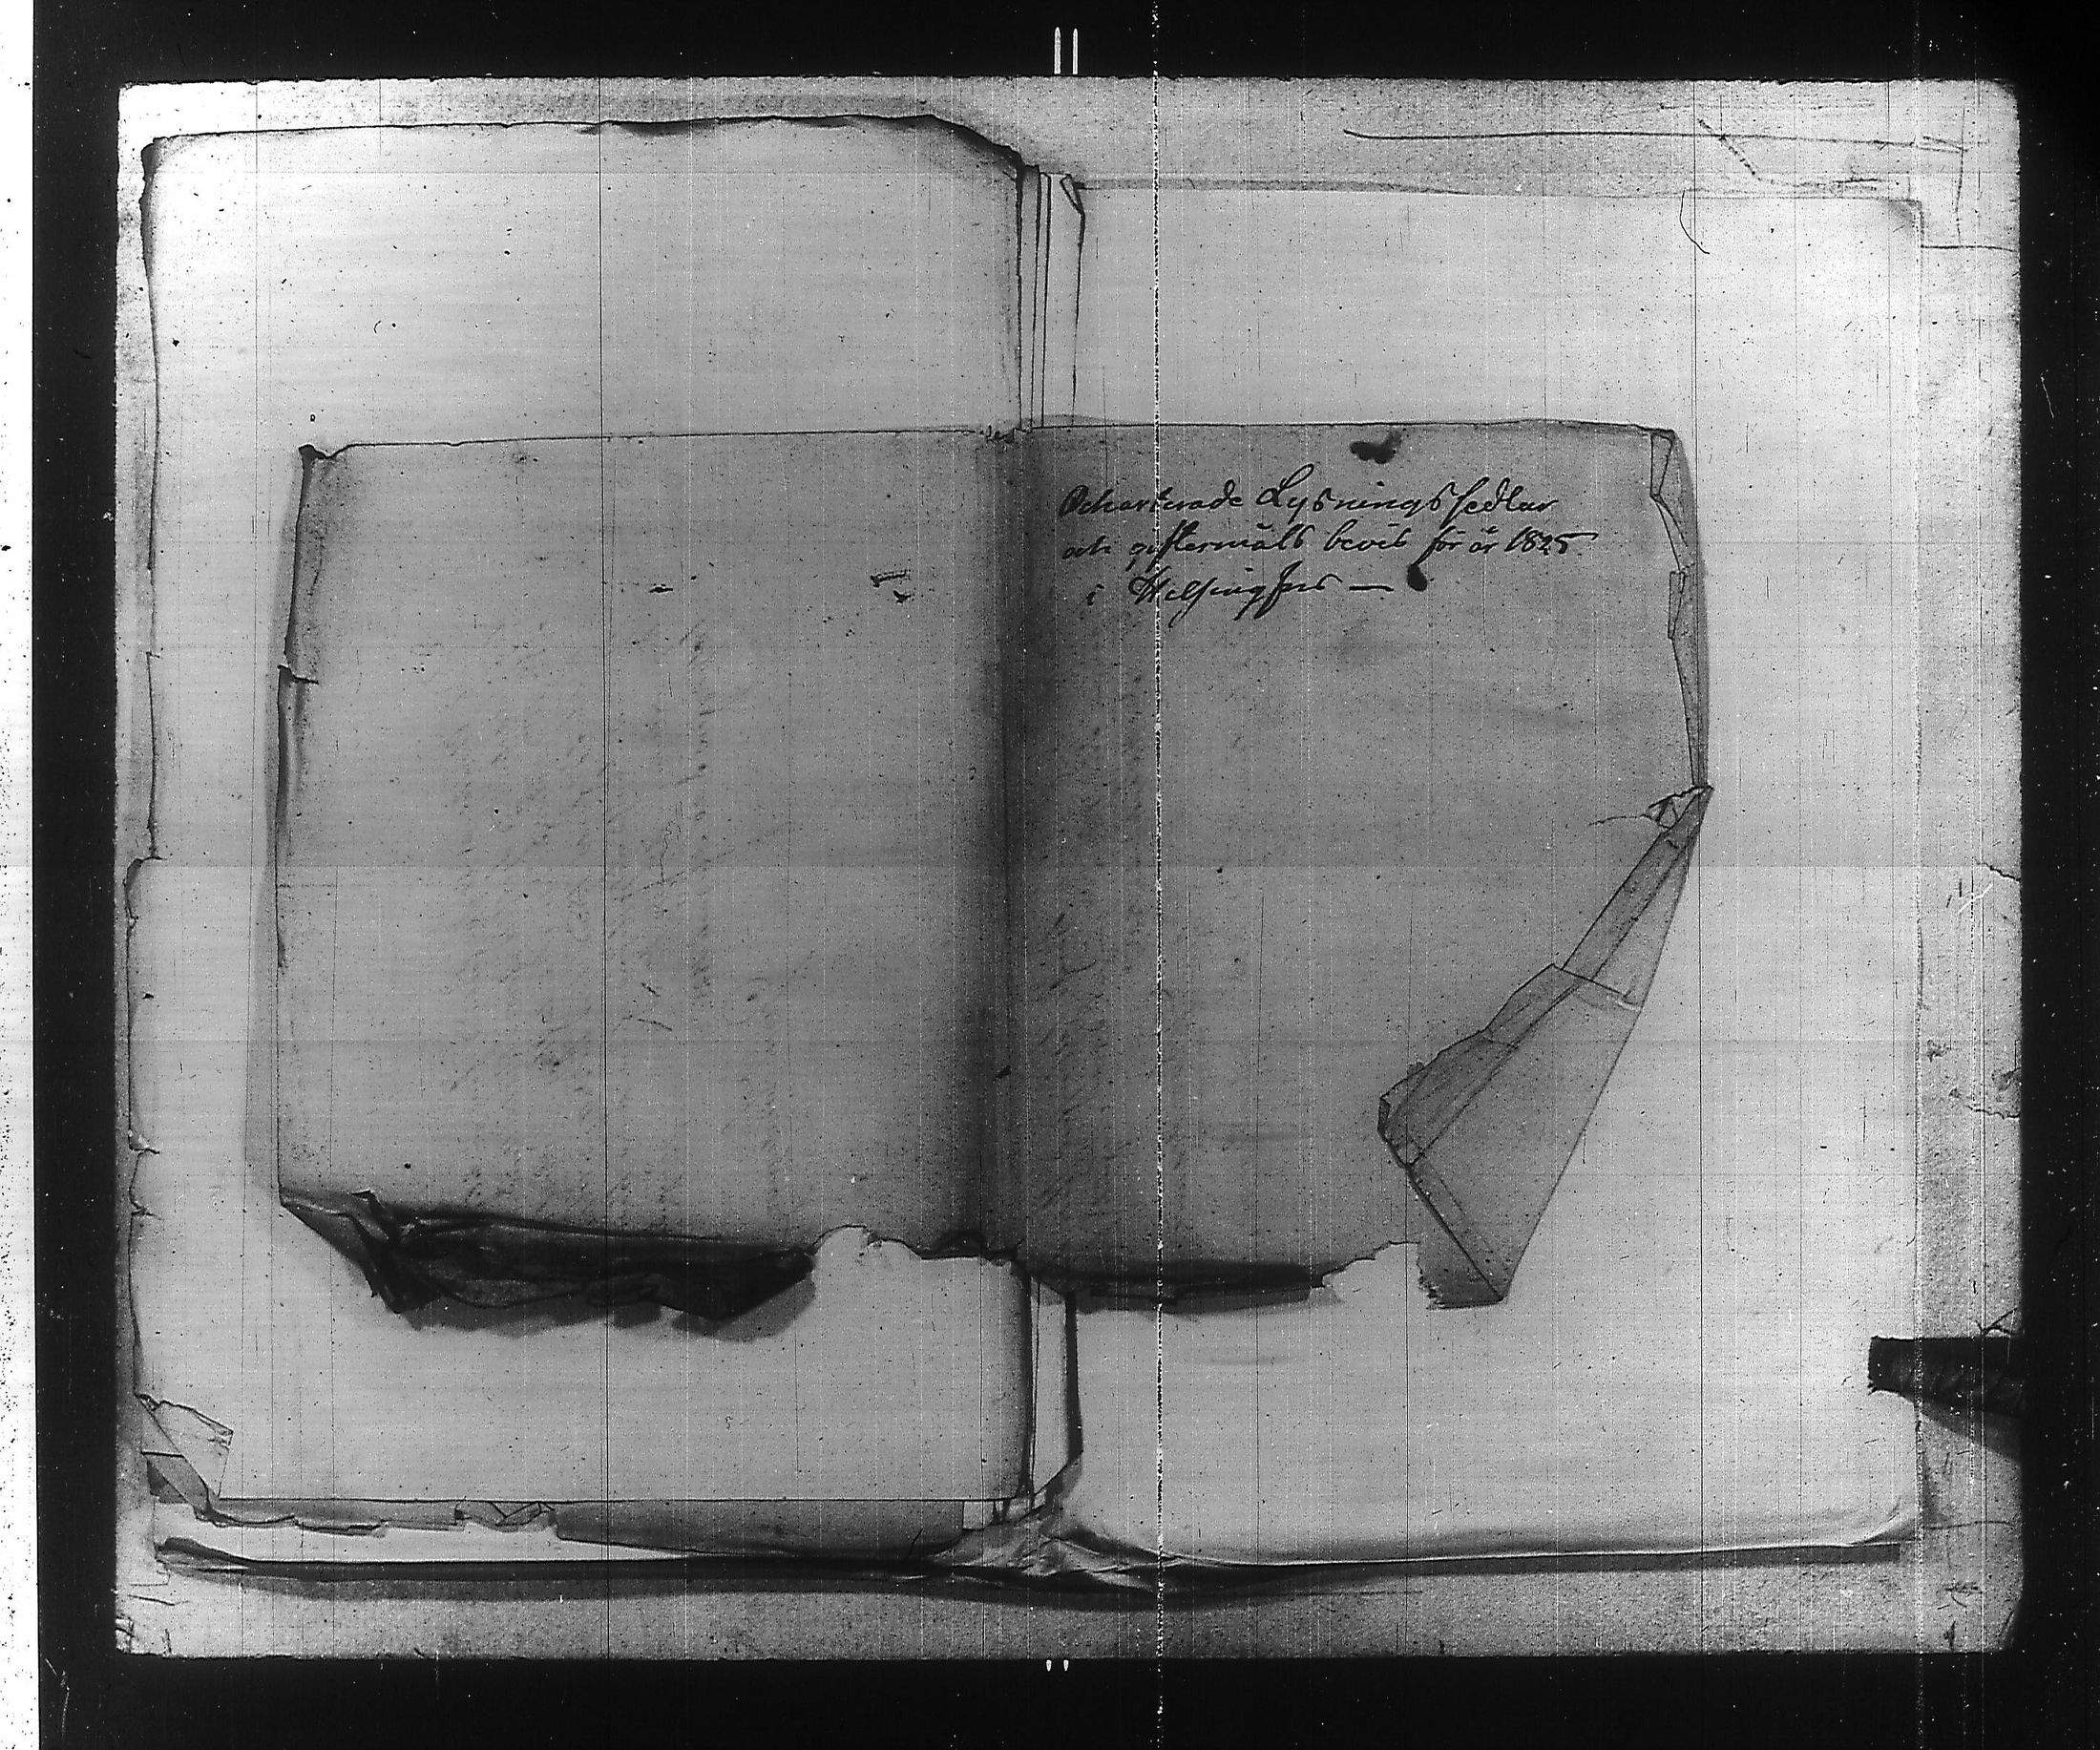 Ocharterade Lysningssedlar
och giftermåls bevis för år 1825
i Helsingfors —